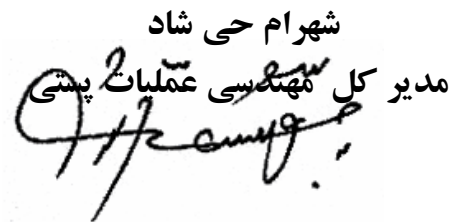 شهرام حی شاد
مدیر کل مهندسی عملیات پستی